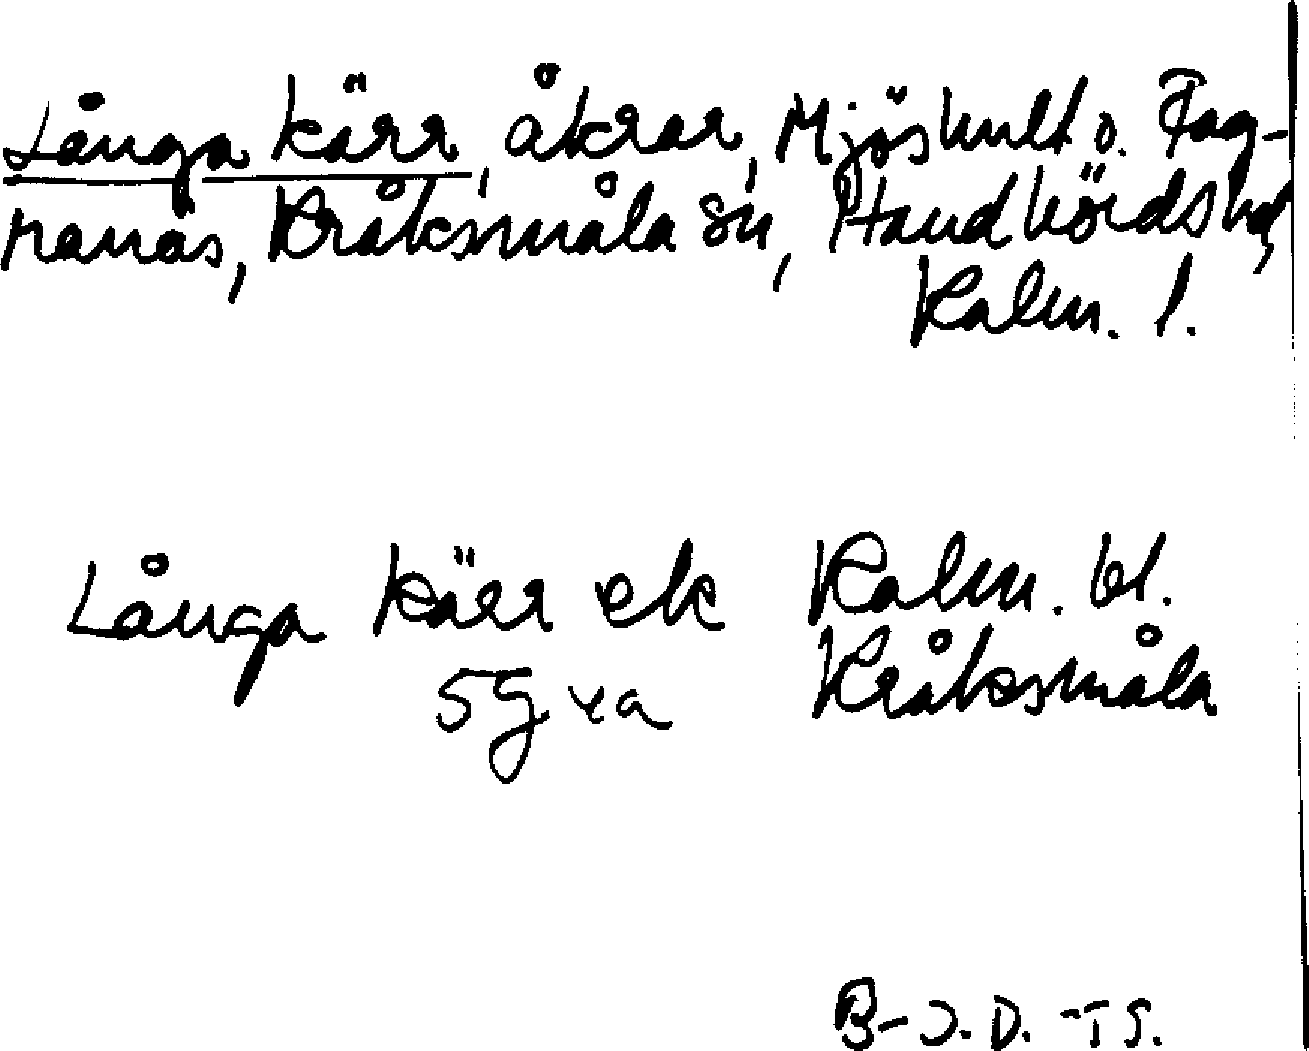 Långa kärr, åkrar, Mjöshult o. Fag-
ranäs, Kråksmåla sn, Handbörds hd,
Kalm. l.
Långa kärr ek Kalm. bl.
5G 4a Kråksmåla
B-J.D.-TS.